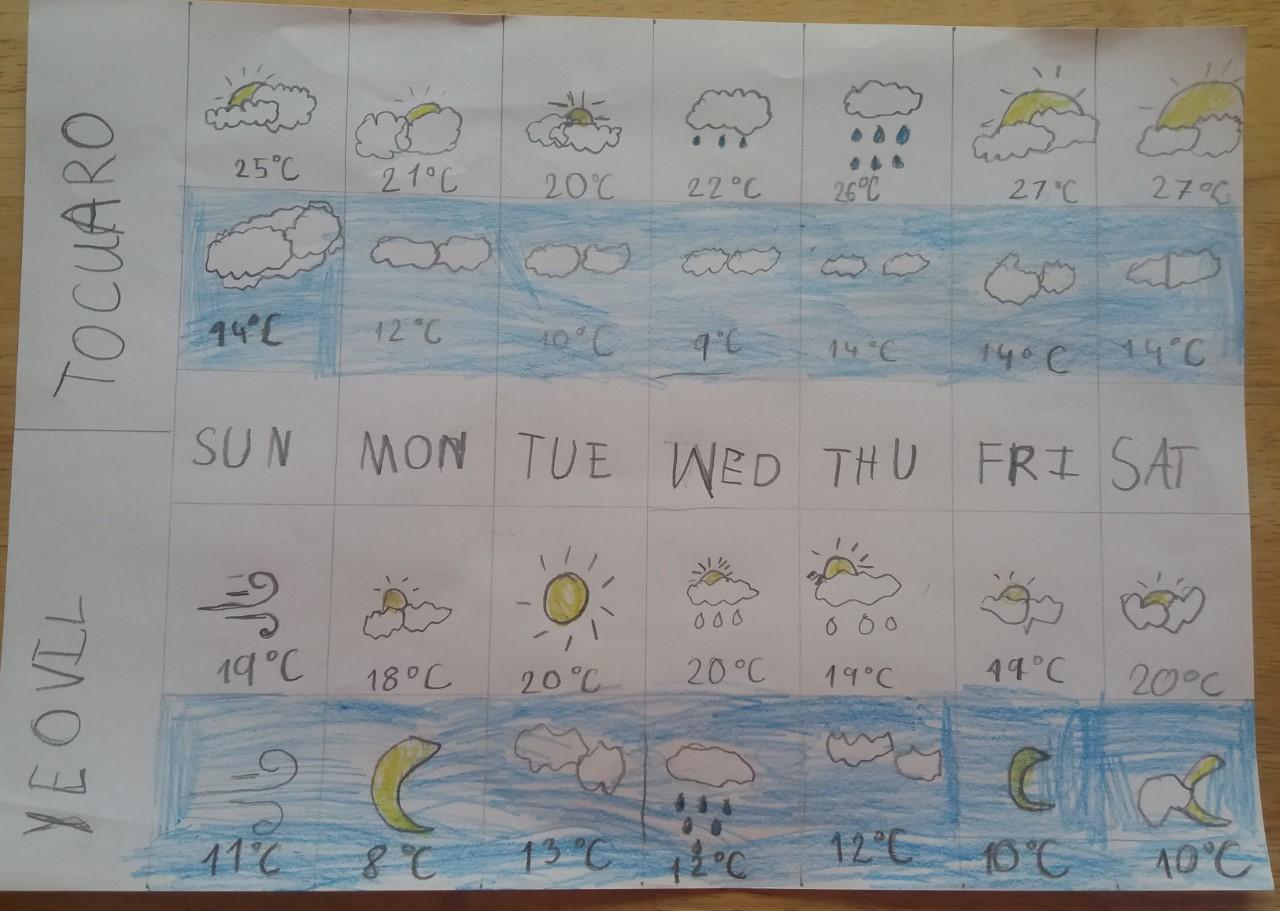 TOCUARO
25°C 21°C 20°C 22°C 26°C 27°C 27°C
14°C 12°C 10°C 9°C 14°C 14°C 14°C
SUN MON TUE WED THU FRI SAT
YEOVIL
19°C 18°C 20°C 20°C 19°C 19°C 20°C
11°C 8°C 13°C 12°C 12°C 10°C 10°C